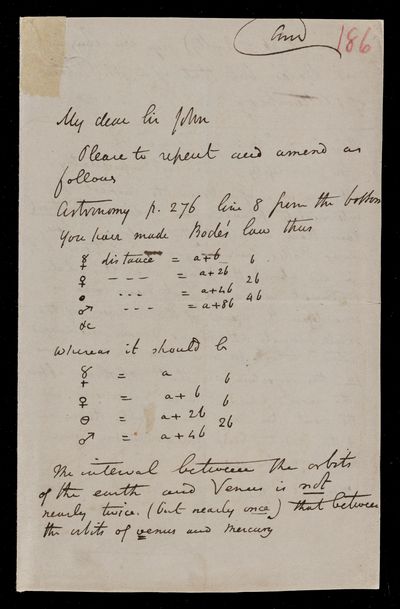 and
186
My dear Sir John
Please to repent and amend as
follows
Astronomy p. 276 line 8 from the bottom
You have made Bode's law thus
☿ distance = a+b b
♀ --- = a+2b 2b
⊖ --- = a+4b 4b
♂ --- = a+8b
&c
Whereas it should be
☿ = a b
♀ = a+b b
⊖ = a+2b 2b
♂ = a+4b
The interval between the orbits
of the earth and Venus is not
nearly twice (but nearly once) that between
the orbits of venus and Mercury